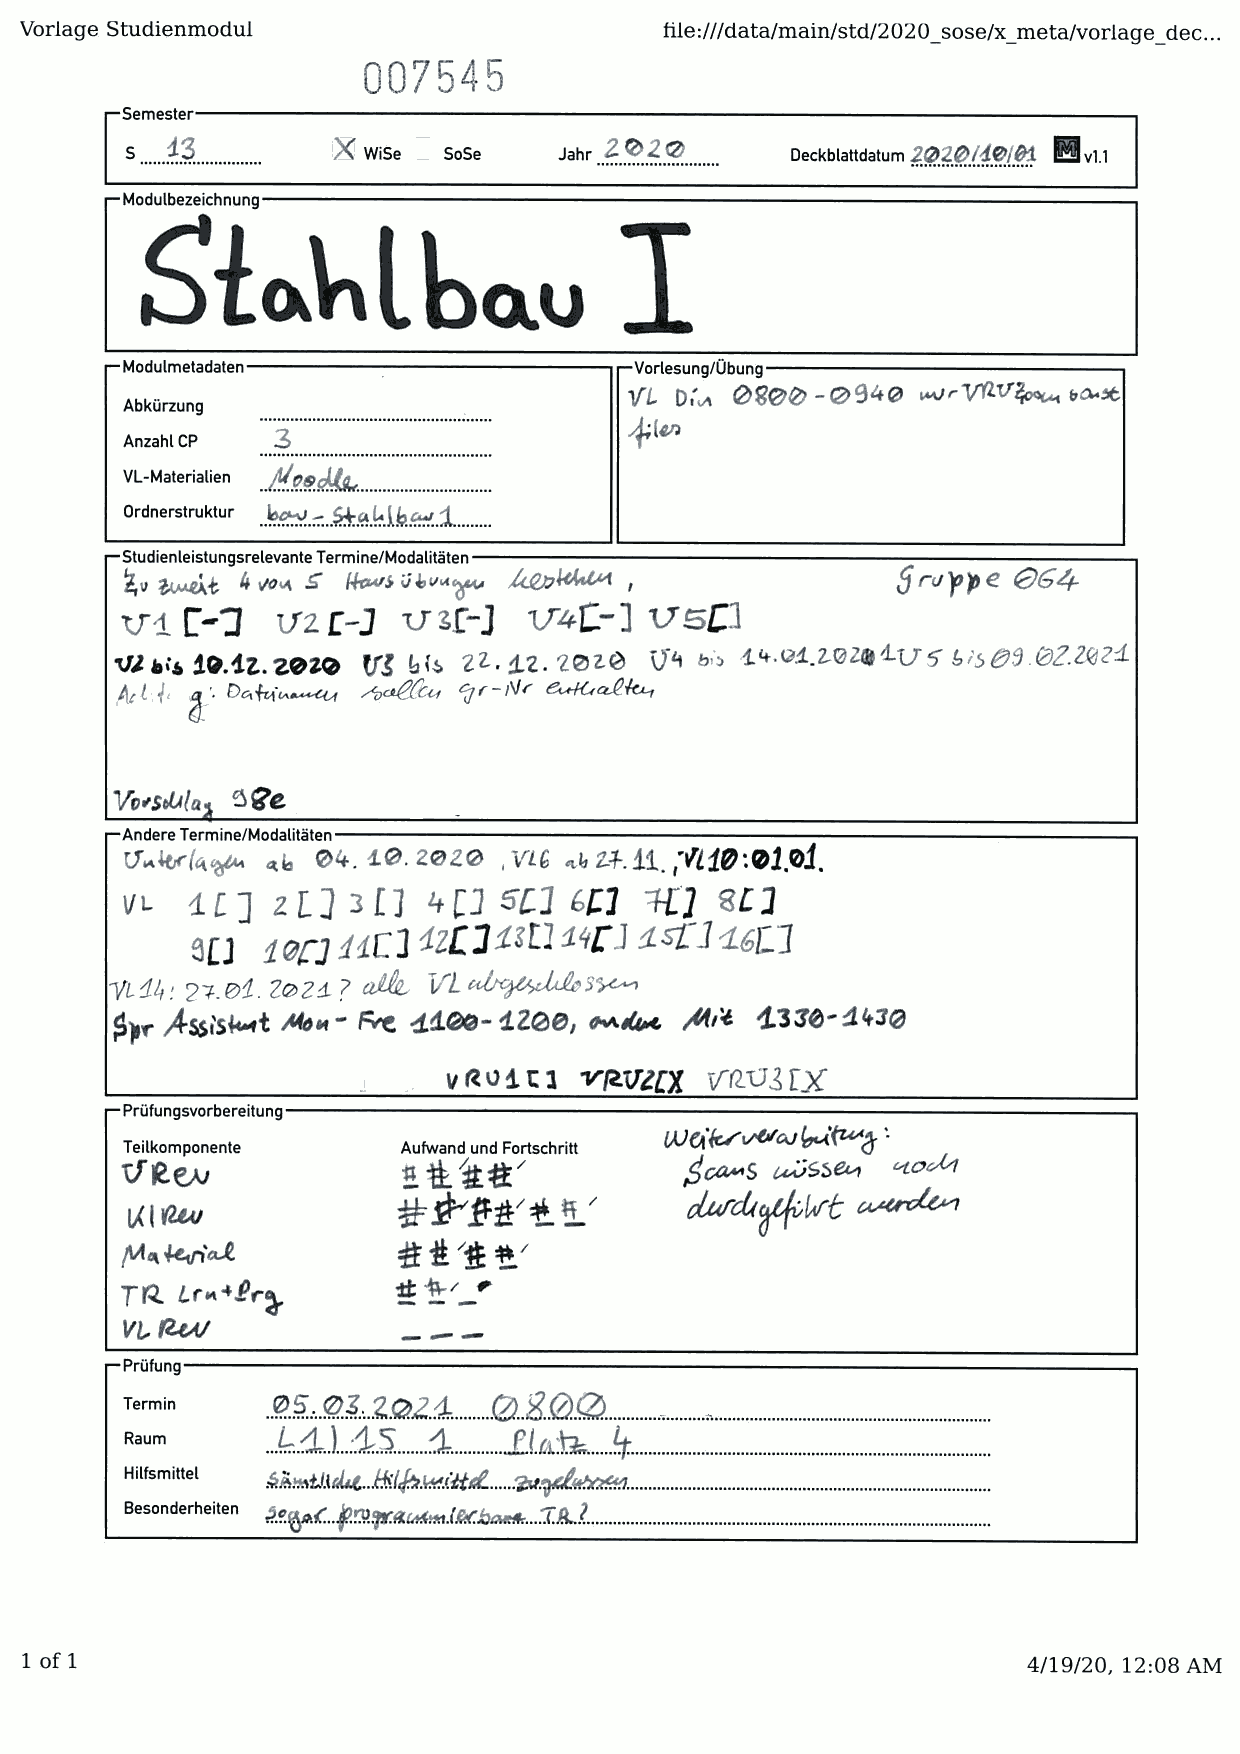 Vorlage Studienmodul file:///data/main/std/2020_sose/x_meta/vorlage_dec...
007545
Semester
S 13 X WiSe SoSe Jahr 2020 Deckblattdatum 2020/10/01 M v1.1
Modulbezeichnung
Stahlbau I
Modulmetadaten
Abkürzung
Anzahl CP 3
VL-Materialien Moodle
Ordnerstruktur bau-Stahlbau1
Vorlesung/Übung
VL Din 0800-0940 nur VRU Zoom sonst
files
Studienleistungsrelevante Termine/Modalitäten
Zu zweit 4 von 5 Hausübungen bestehen, Gruppe 064
Ü1 [-] Ü2 [-] Ü3[-] Ü4[-] Ü5[]
Ü2 bis 10.12.2020 Ü3 bis 22.12.2020 Ü4 bis 14.01.2021 Ü5 bis 09.02.2021
Dateinamen sollen Gr-Nr enthalten
Vorschlag 98e
Andere Termine/Modalitäten
Unterlagen ab 04.10.2020, VL6 ab 27.11., VL10:01.01.
VL 1[] 2[] 3[] 4[] 5[] 6[] 7[] 8[]
9[] 10[] 11[] 12[] 13[] 14[] 15[] 16[]
VL14: 27.01.2021? alle VL abgeschlossen
Spr Assistent Mon-Fre 1100-1200, andere Mit 1330-1430
VRU1[] VRU2[X VRU3[X
Prüfungsvorbereitung
Teilkomponente Aufwand und Fortschritt
ÜRev
KlRev
Material
TR Lrn+Prg
VL Rev
Weiterverarbeitung:
Scans müssen noch
durchgeführt werden
Prüfung
Termin 05.03.2021 0800
Raum L1|15 1 Platz 4
Hilfsmittel sämtliche Hilfsmittel zugelassen
Besonderheiten sogar programmierbare TR?
1 of 1 4/19/20, 12:08 AM